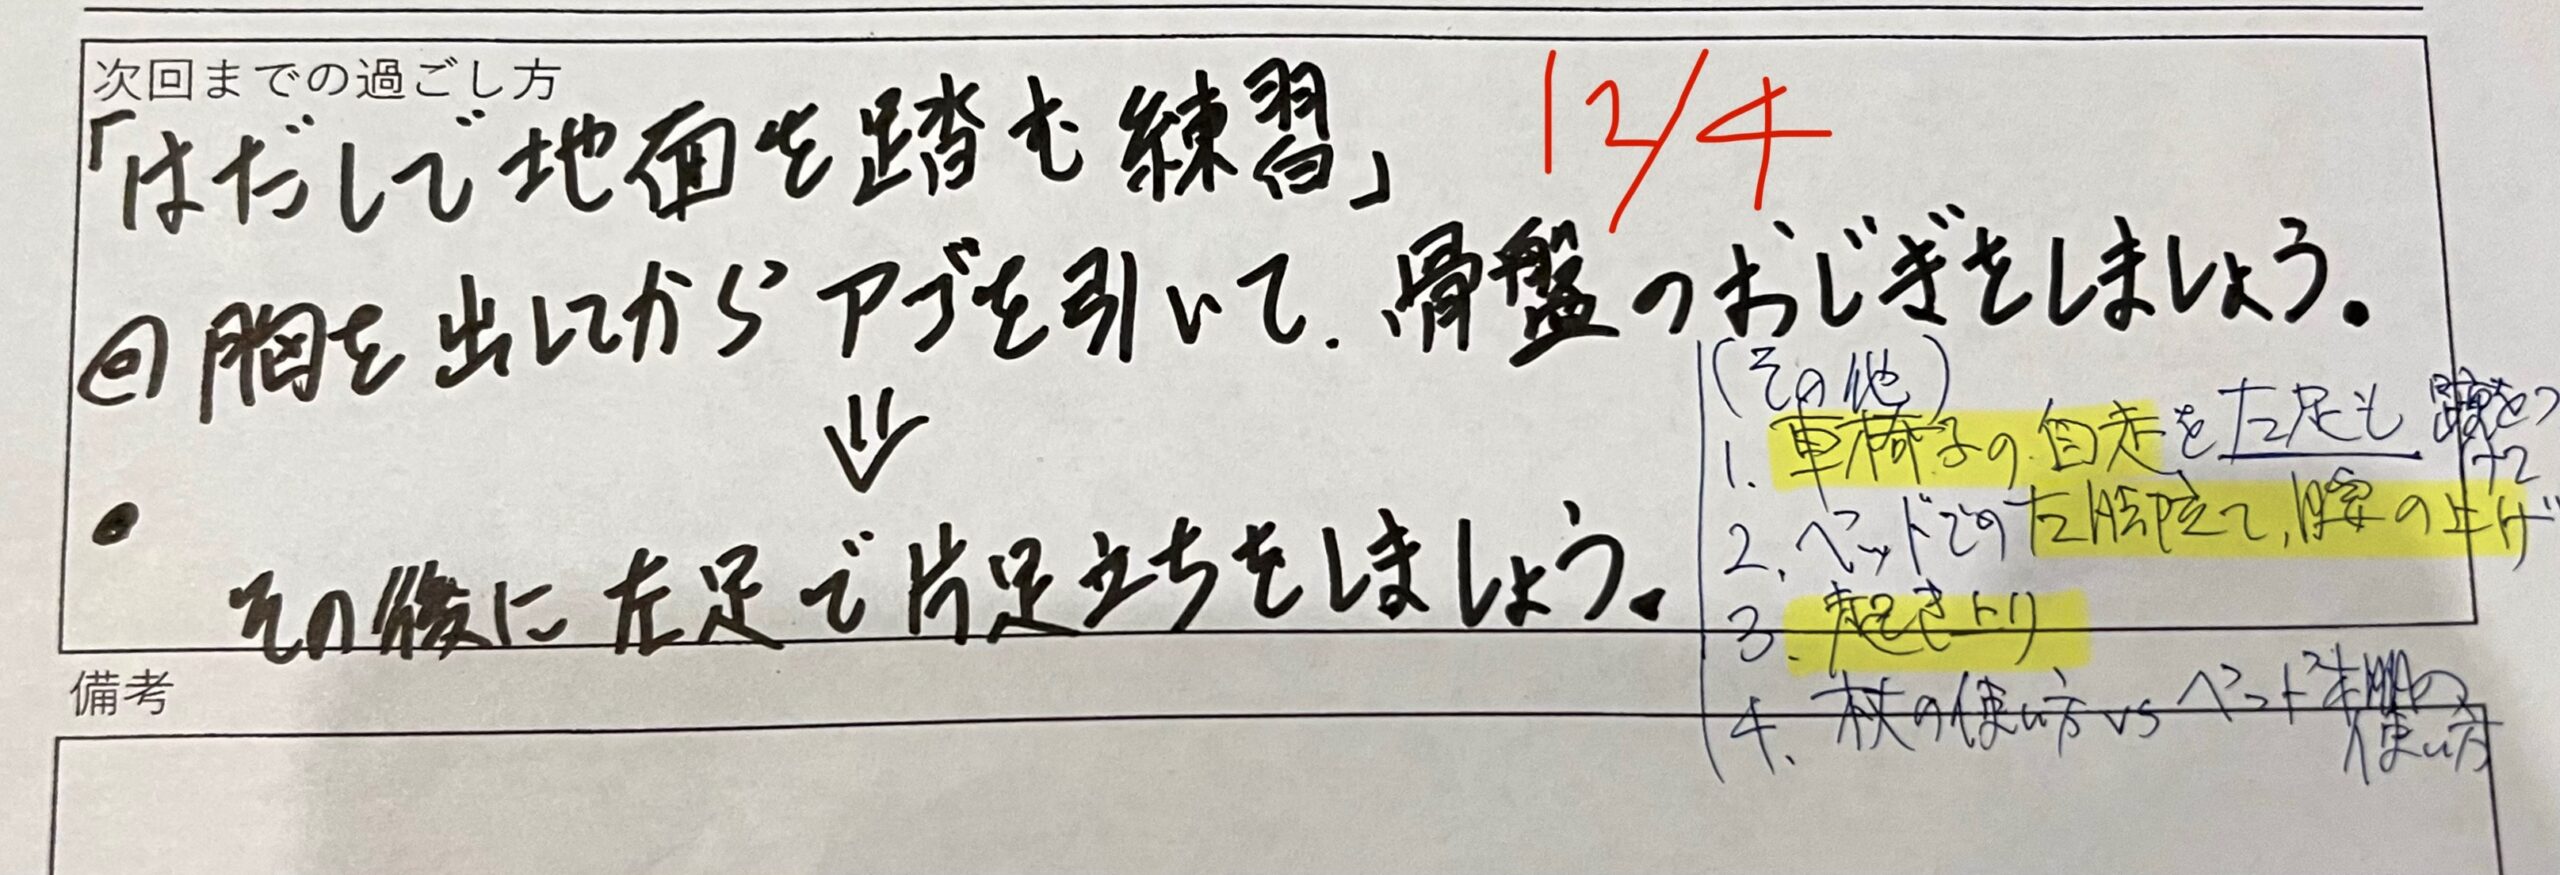 次回までの過ごし方
12/4
「はだしで地面を踏む練習」
@胸を出してからアゴを引いて、骨盤のおじぎをしましょう。
⇓
・
その後に左足で片足立ちをしましょう。
(その他)
1. 車椅子の自走を左足も
2. ベッドでの左膝立て,腰の上げ
3. 起き上り
4. 杖の使い方 vs ベッド柵の
使い方
備考